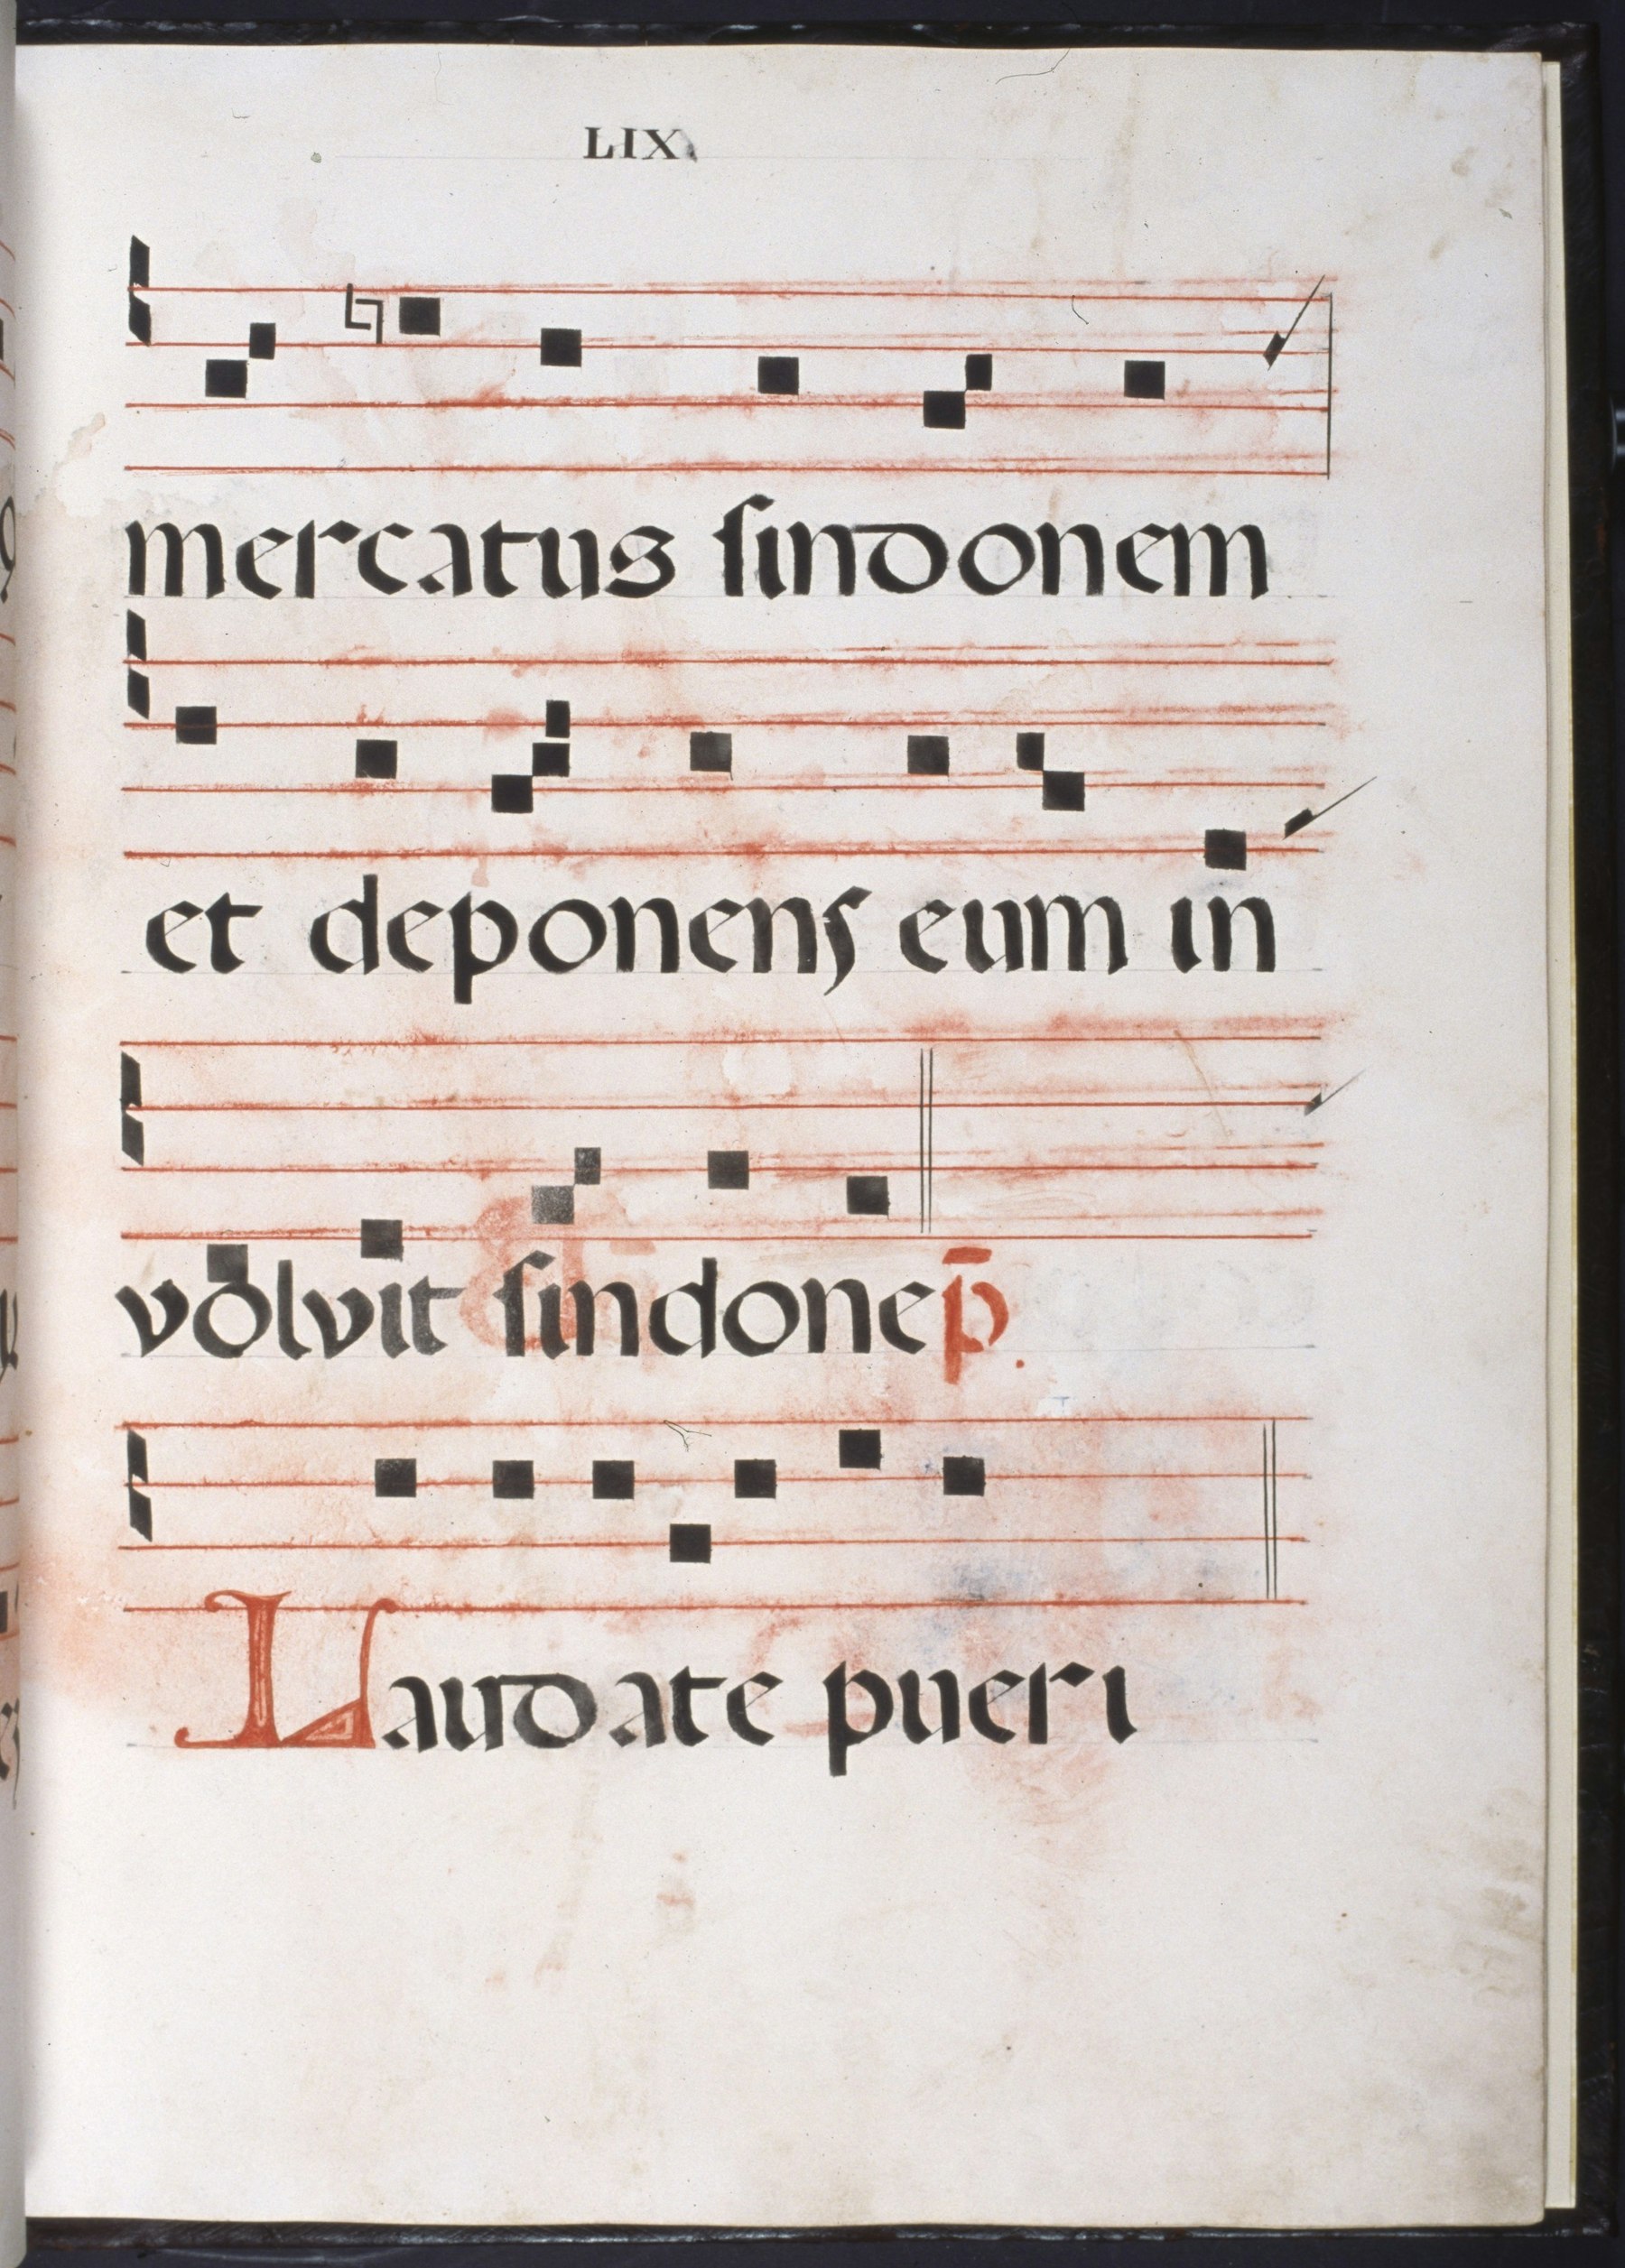 LIX
mercatus ſindonem
et deponens eum in
volvit ſindone p̄.
Laudate pueri